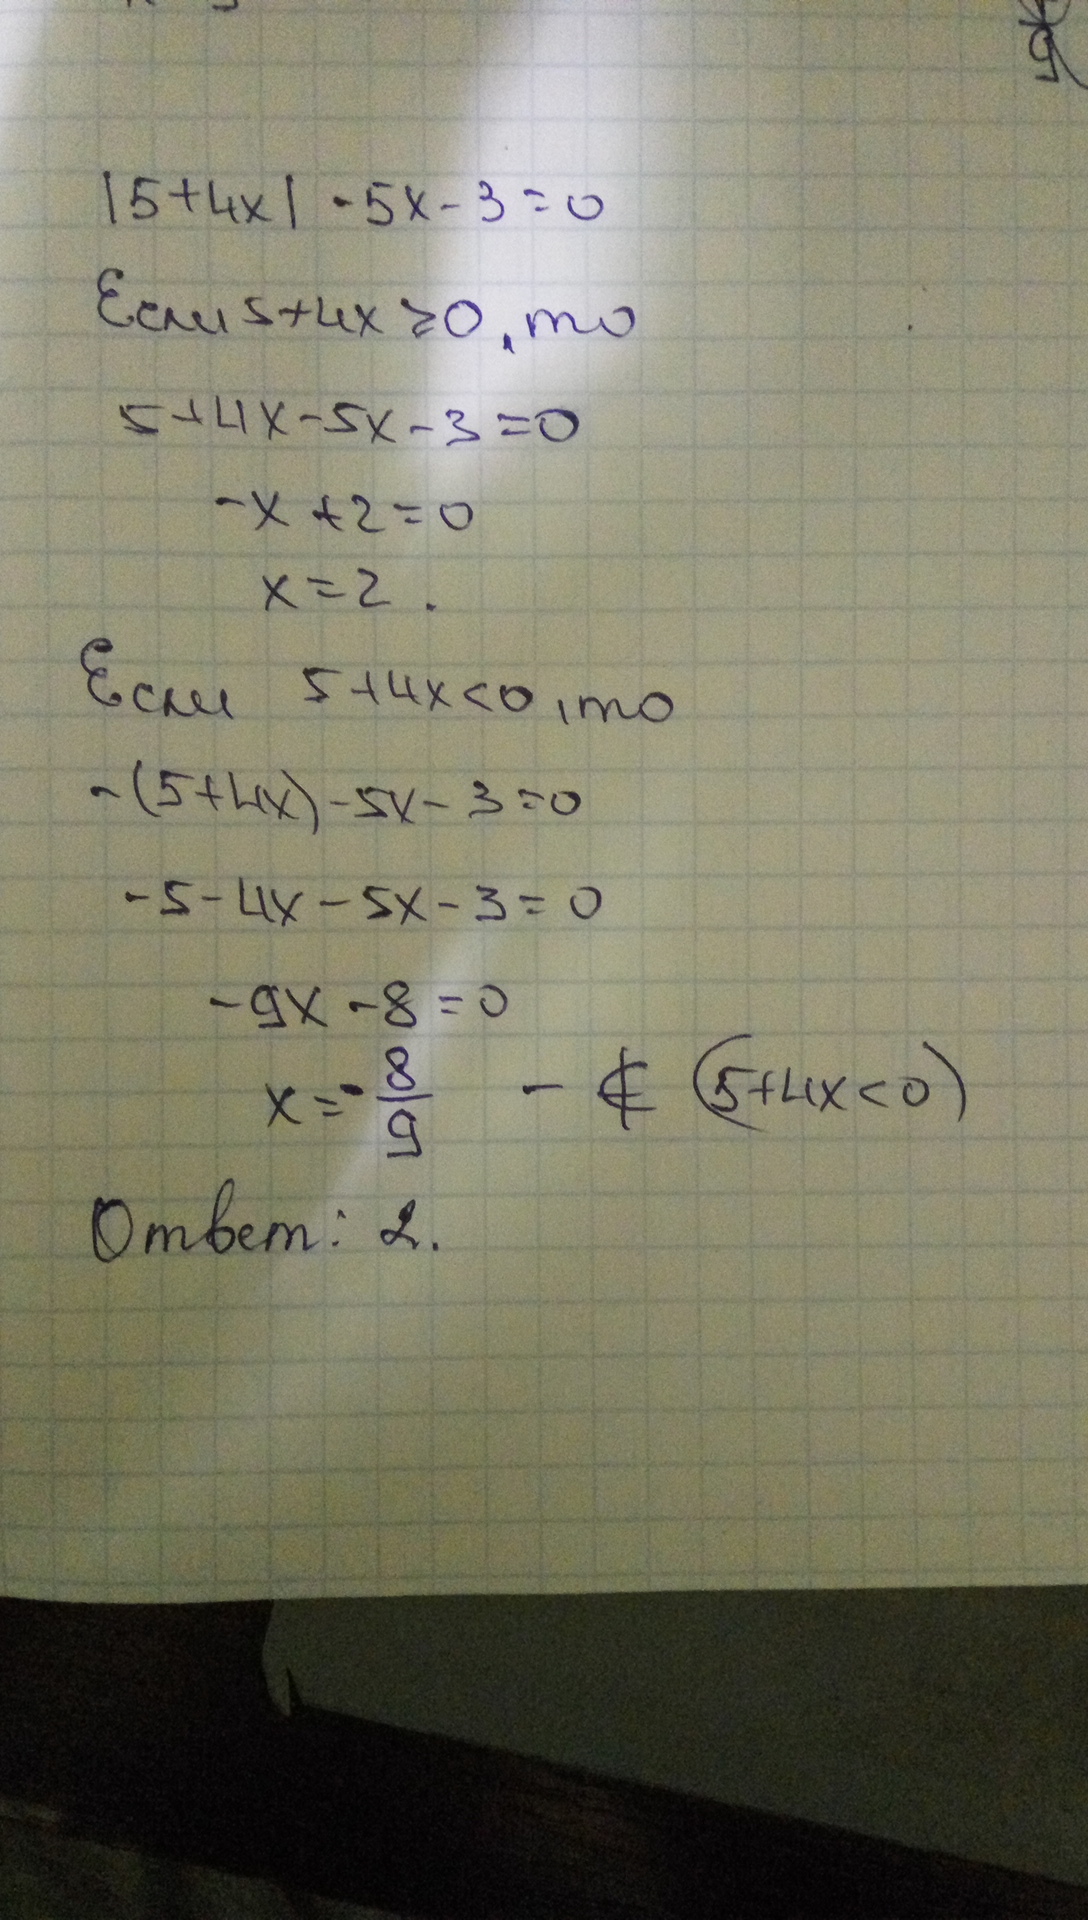 |5+4x| -5x-3=0
Если 5+4x≥0, то
5+4x-5x-3=0
-x+2=0
x=2.
Если 5+4x<0, то
-(5+4x)-5x-3=0
-5-4x-5x-3=0
-9x-8=0
x=-8/9 - ∉ (5+4x<0)
Ответ: 2.